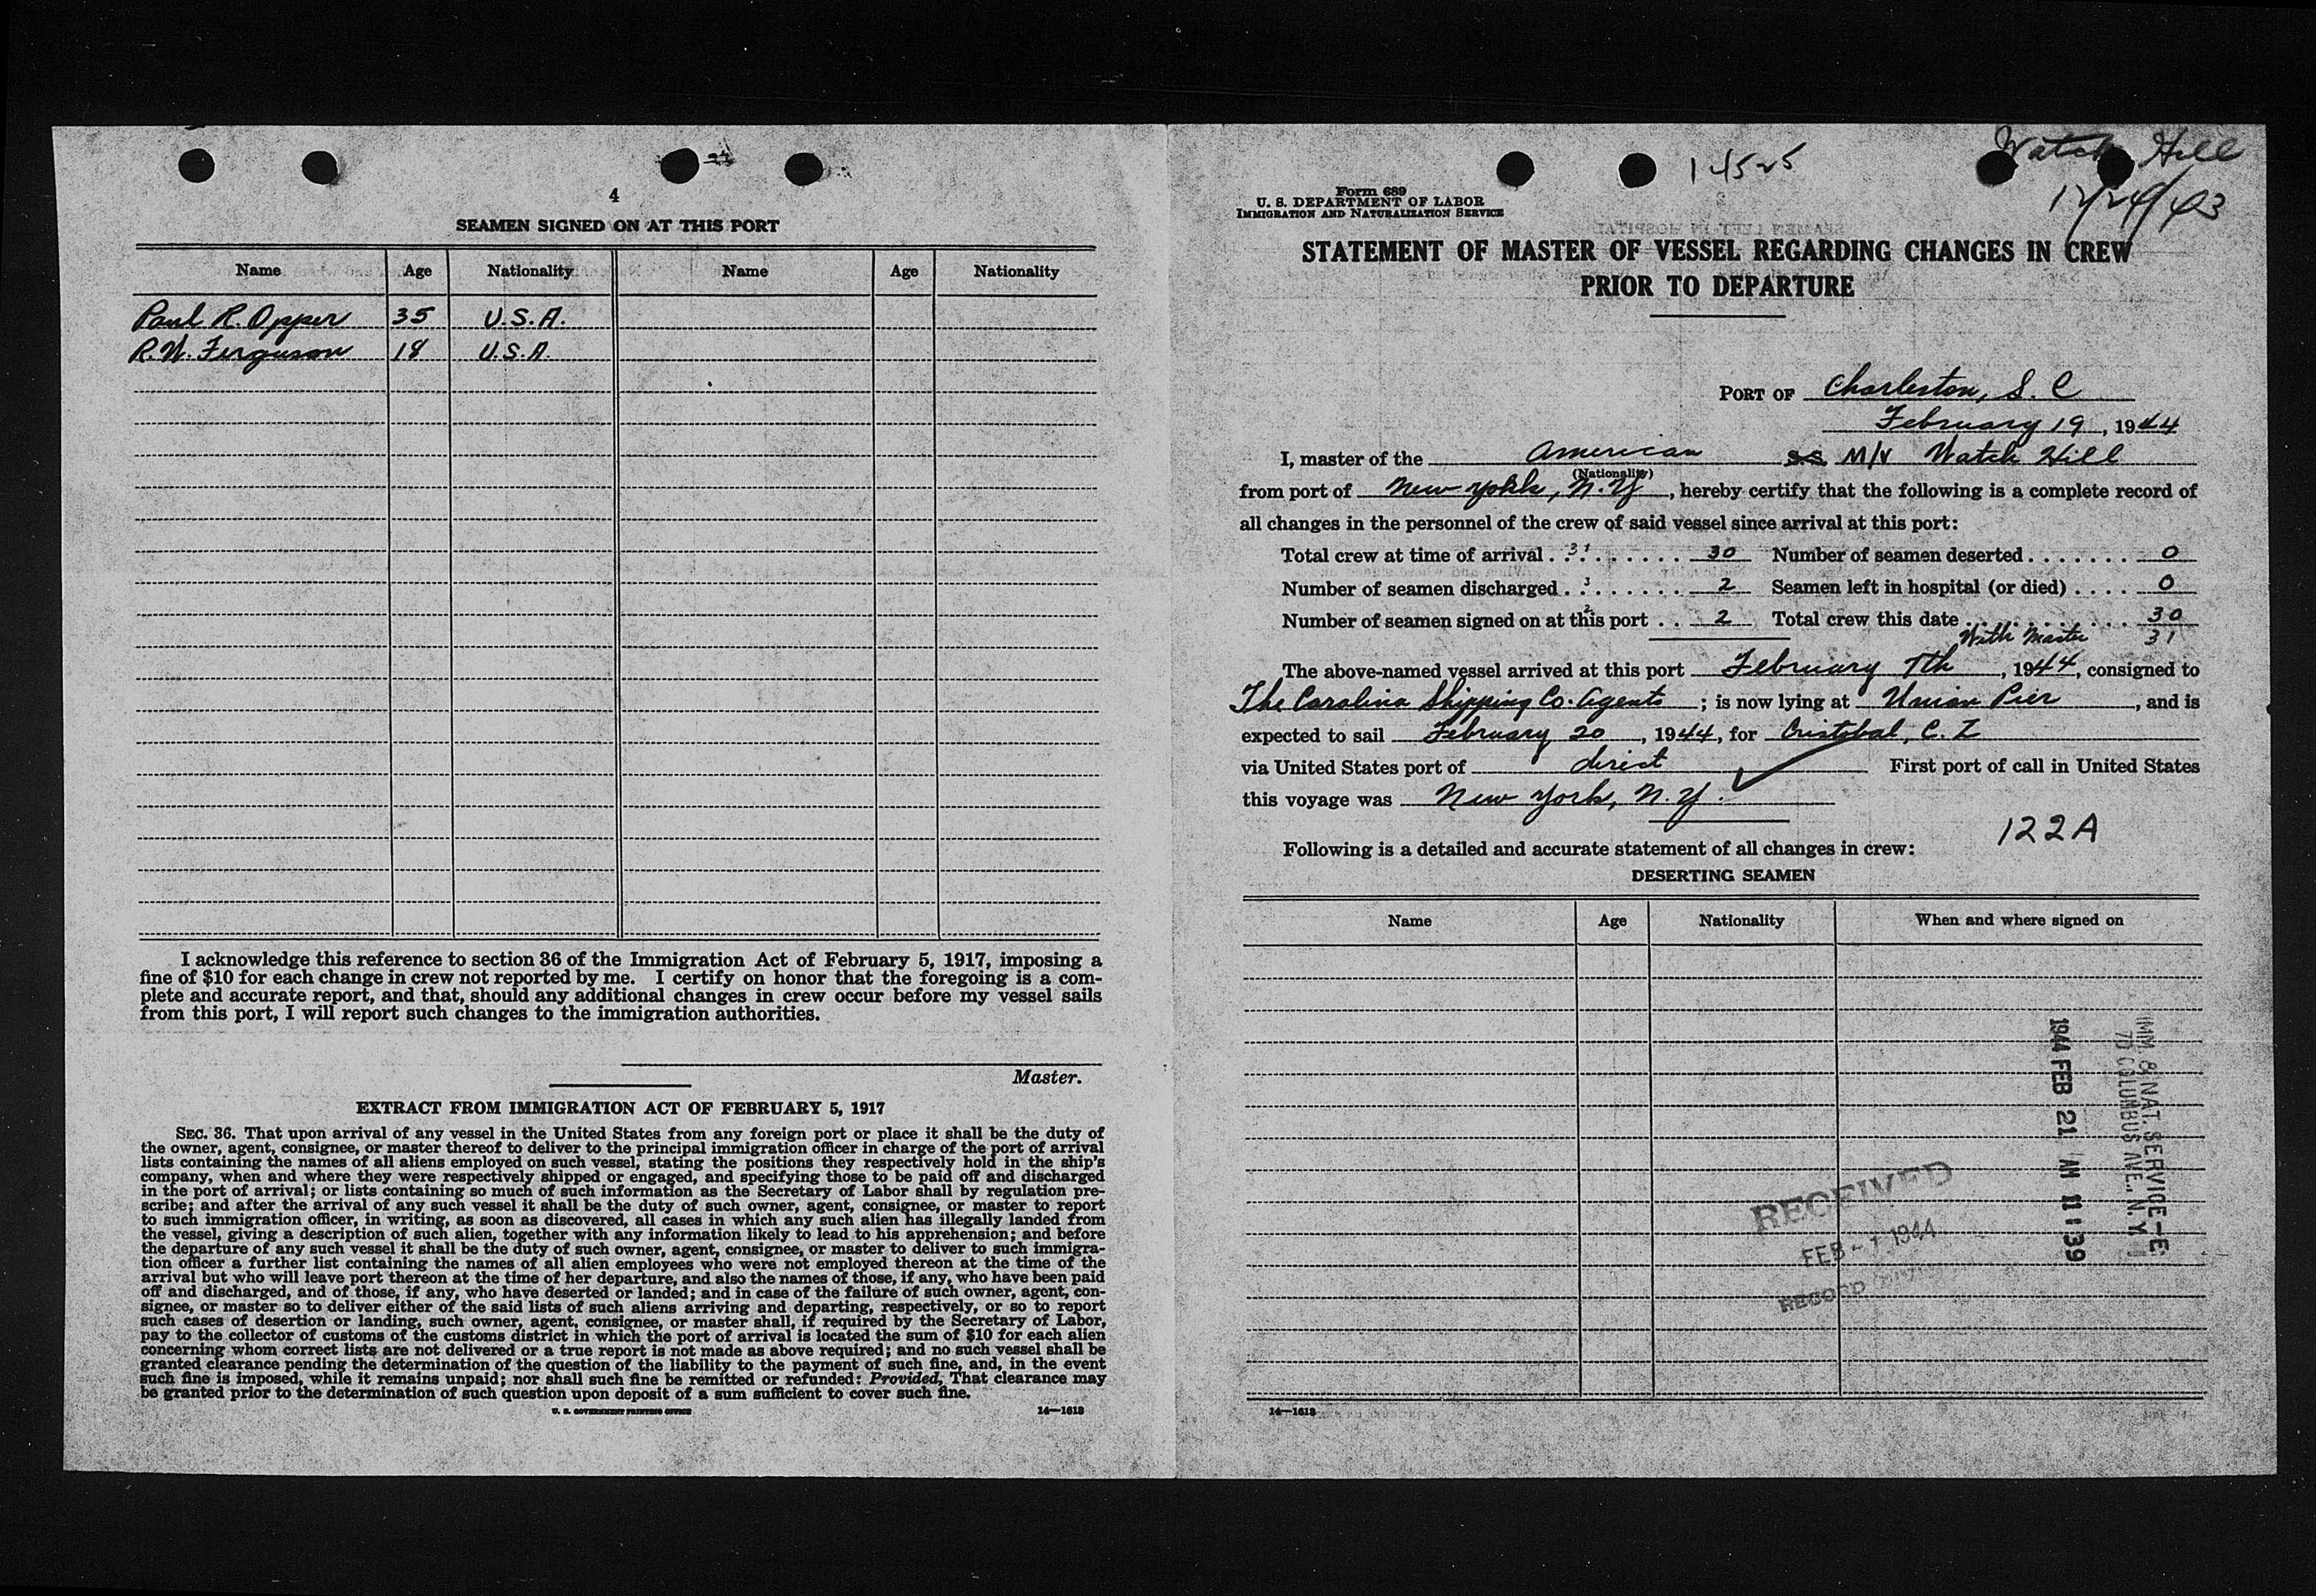 4
SEAMEN SIGNED ON AT THIS PORT
Name Age Nationality Name Age Nationality
Paul R. Opper 35 U.S.A.
R.W. Ferguson 18 U.S.A.
I acknowledge this reference to section 36 of the Immigration Act of February 5, 1917, imposing a
fine of $10 for each change in crew not reported by me. I certify on honor that the foregoing is a com-
plete and accurate report, and that, should any additional changes in crew occur before my vessel sails
from this port, I will report such changes to the immigration authorities.
Master.
EXTRACT FROM IMMIGRATION ACT OF FEBRUARY 5, 1917
SEC. 36. That upon arrival of any vessel in the United States from any foreign port or place it shall be the duty of
the owner, agent, consignee, or master thereof to deliver to the principal immigration officer in charge of the port of arrival
lists containing the names of all aliens employed on such vessel, stating the positions they respectively hold in the ship's
company, when and where they were respectively shipped or engaged, and specifying those to be paid off and discharged
in the port of arrival; or lists containing so much of such information as the Secretary of Labor shall by regulation pre-
scribe; and after the arrival of any such vessel it shall be the duty of such owner, agent, consignee, or master to report
to such immigration officer, in writing, as soon as discovered, all cases in which any such alien has illegally landed from
the vessel, giving a description of such alien, together with any information likely to lead to his apprehension; and before
the departure of any such vessel it shall be the duty of such owner, agent, consignee, or master to deliver to such immigra-
tion officer a further list containing the names of all alien employees who were not employed thereon at the time of the
arrival but who will leave port thereon at the time of her departure, and also the names of those, if any, who have been paid
off and discharged, and of those, if any, who have deserted or landed; and in case of the failure of such owner, agent, con-
signee, or master so to deliver either of the said lists of such aliens arriving and departing, respectively, or so to report
such cases of desertion or landing, such owner, agent, consignee, or master shall, if required by the Secretary of Labor,
pay to the collector of customs of the customs district in which the port of arrival is located the sum of $10 for each alien
concerning whom correct lists are not delivered or a true report is not made as above required; and no such vessel shall be
granted clearance pending the determination of the question of the liability to the payment of such fine, and, in the event
such fine is imposed, while it remains unpaid; nor shall such fine be remitted or refunded: Provided, That clearance may
be granted prior to the determination of such question upon deposit of a sum sufficient to cover such fine.
U. S. GOVERNMENT PRINTING OFFICE 14—1613
Watch Hill
14525
12/24/43
Form 689
U. S. DEPARTMENT OF LABOR
IMMIGRATION AND NATURALIZATION SERVICE
STATEMENT OF MASTER OF VESSEL REGARDING CHANGES IN CREW
PRIOR TO DEPARTURE
PORT OF Charleston, S. C
February 19, 1944
I, master of the American S.S. M/V Watch Hill
(Nationality)
from port of New York, N.Y, hereby certify that the following is a complete record of
all changes in the personnel of the crew of said vessel since arrival at this port:
Total crew at time of arrival . 31 . . . . . . . 30 Number of seamen deserted . . . . . . . 0
Number of seamen discharged . 3 . . . . . . . 2 Seamen left in hospital (or died) . . . . 0
Number of seamen signed on at this port 2 . . 2 Total crew this date . . . . . . . . . . 30
With Master 31
The above-named vessel arrived at this port February 7th, 1944, consigned to
The Carolina Shipping Co. Agents; is now lying at Union Pier, and is
expected to sail February 20, 1944, for Cristobal, C. Z
via United States port of direct First port of call in United States
this voyage was New York, N.Y.
122A
Following is a detailed and accurate statement of all changes in crew:
DESERTING SEAMEN
Name Age Nationality When and where signed on
IMM. & NAT. SERVICE—E
70 COLUMBUS AVE., N. Y.
1944 FEB 21 AM 11 39
RECEIVED
FEB - 1 1944
RECORD
14—1613